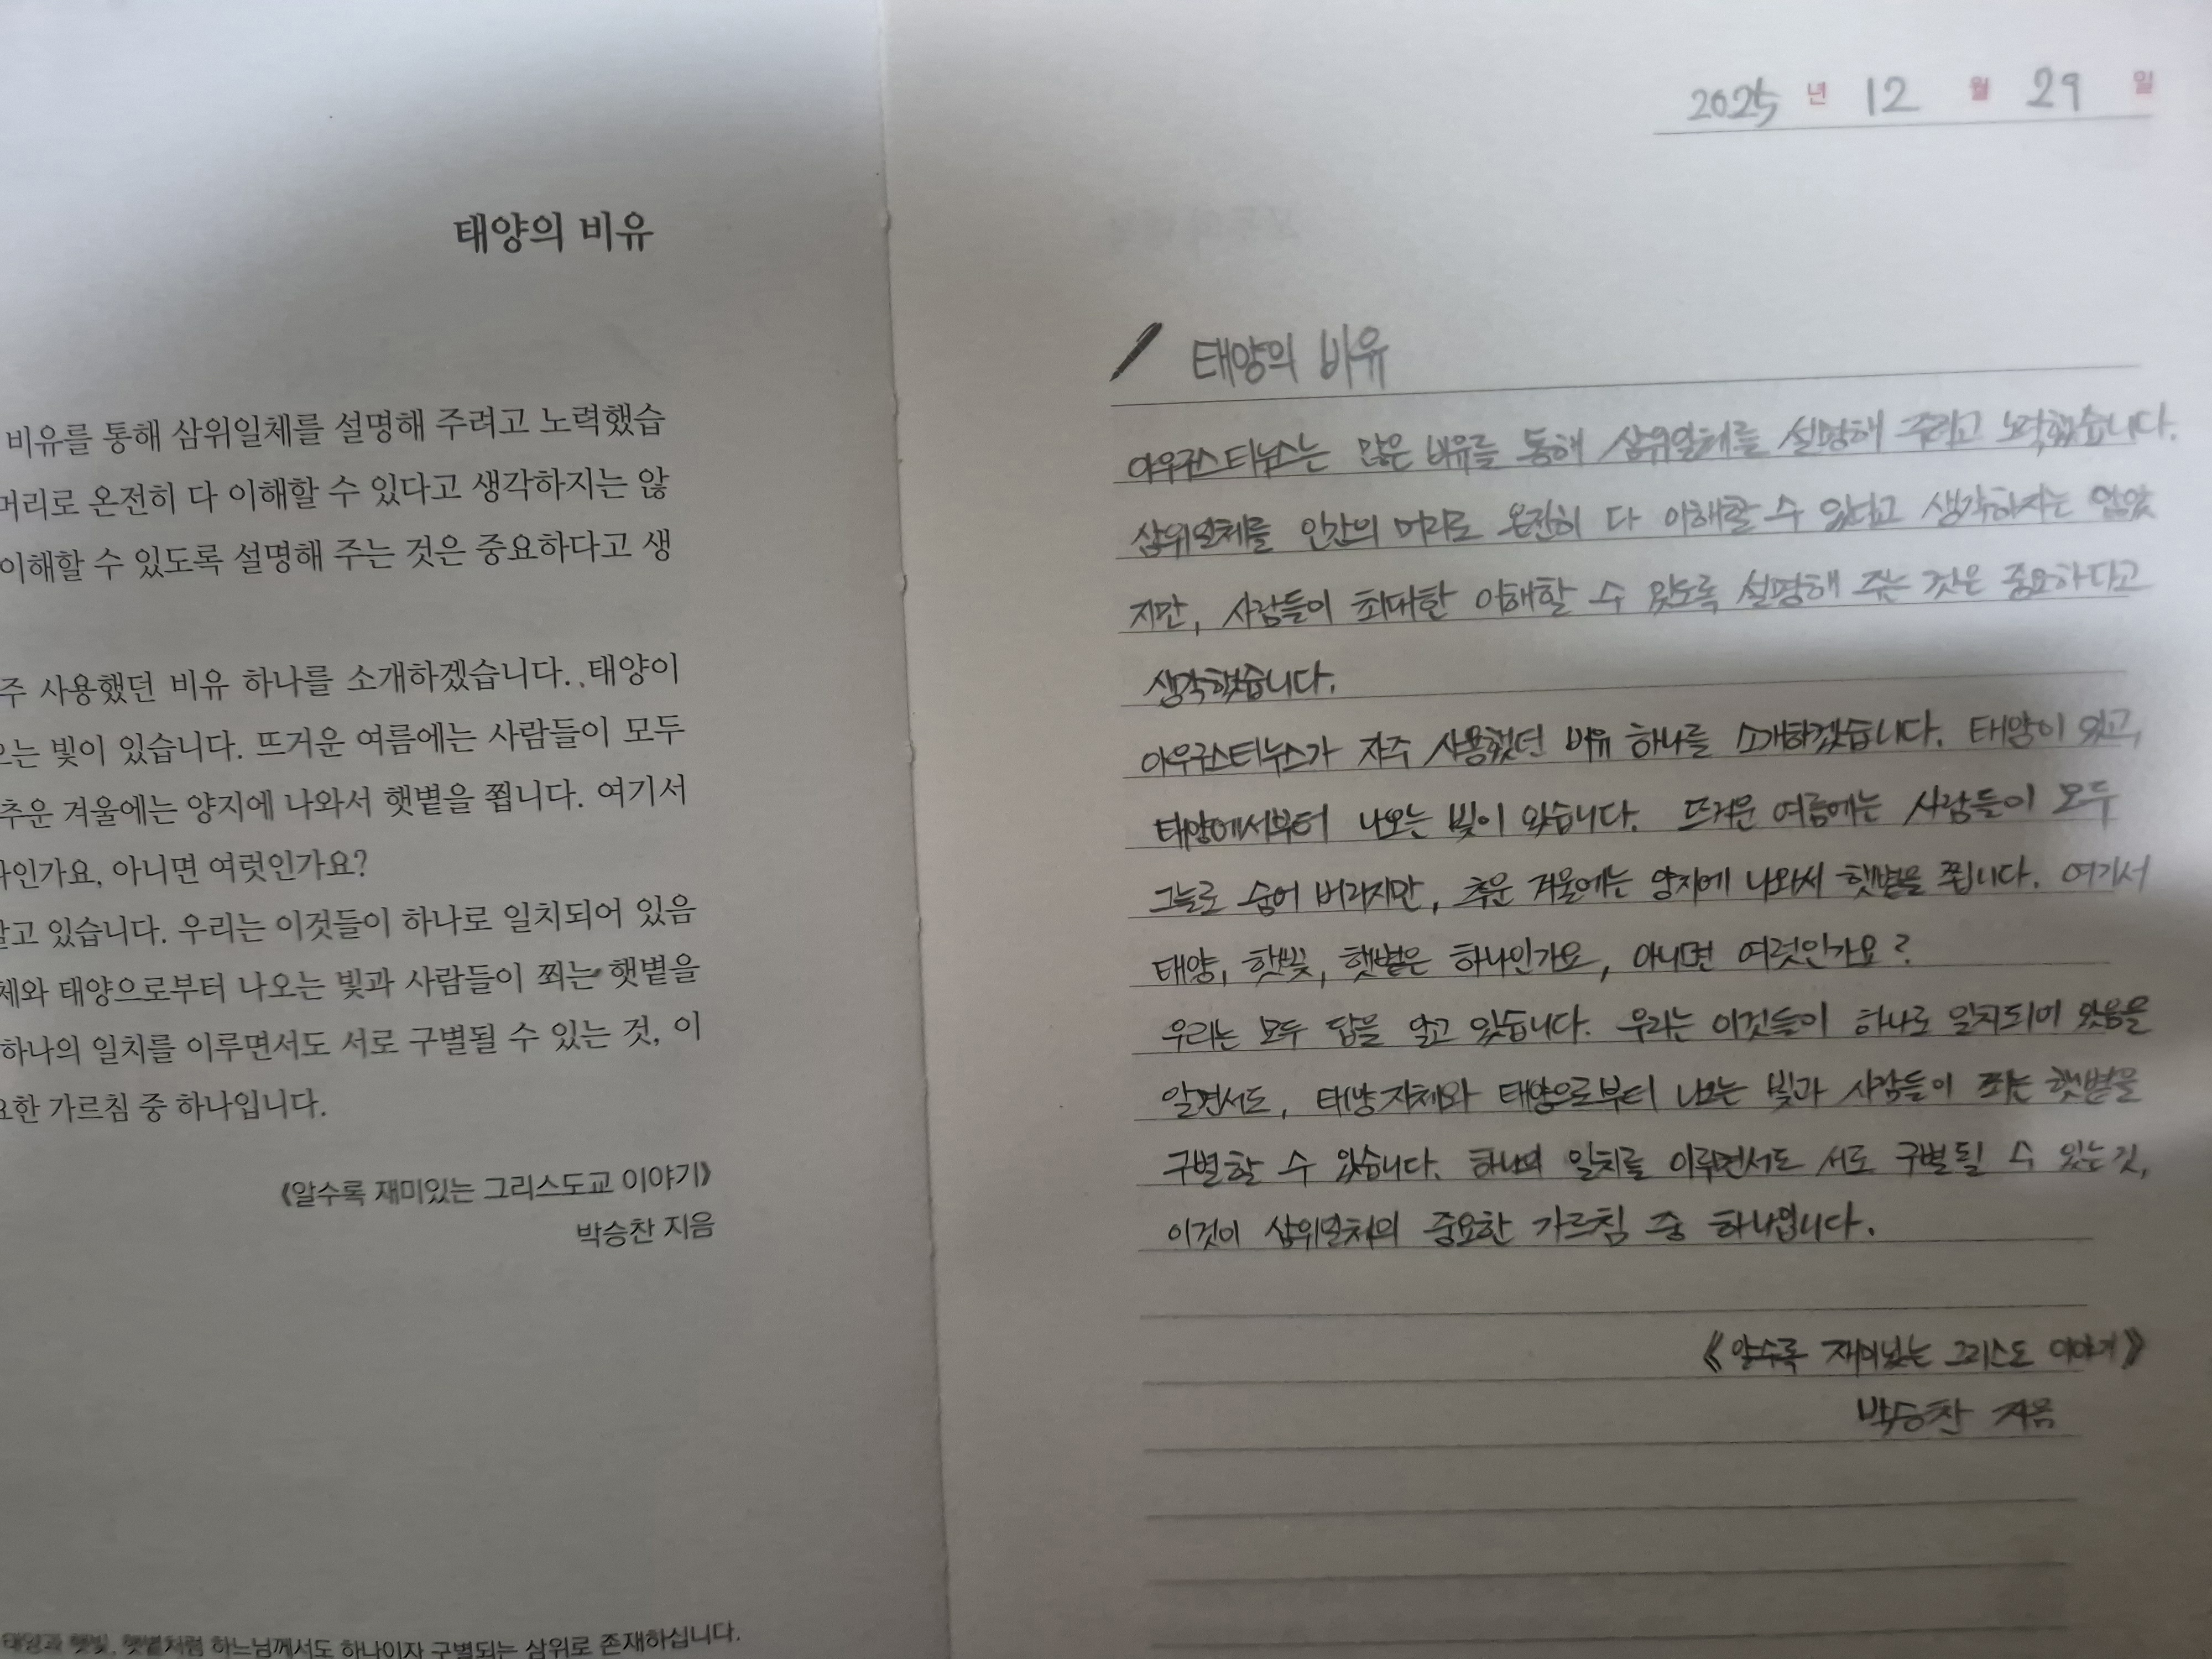 태양의 비유
비유를 통해 삼위일체를 설명해 주려고 노력했습
머리로 온전히 다 이해할 수 있다고 생각하지는 않
이해할 수 있도록 설명해 주는 것은 중요하다고 생
주 사용했던 비유 하나를 소개하겠습니다. 태양이
오는 빛이 있습니다. 뜨거운 여름에는 사람들이 모두
추운 겨울에는 양지에 나와서 햇볕을 쬡니다. 여기서
나인가요, 아니면 여럿인가요?
알고 있습니다. 우리는 이것들이 하나로 일치되어 있음
체와 태양으로부터 나오는 빛과 사람들이 쬐는 햇볕을
하나의 일치를 이루면서도 서로 구별될 수 있는 것, 이
요한 가르침 중 하나입니다.
《알수록 재미있는 그리스도교 이야기》
박승찬 지음
태양과 햇빛, 햇볕처럼 하느님께서도 하나이자 구별되는 삼위로 존재하십니다.
2025 년 12 월 29 일
태양의 비유
아우구스티누스는 많은 비유를 통해 삼위일체를 설명해 주려고 노력했습니다.
삼위일체를 인간의 머리로 온전히 다 이해할 수 있다고 생각하지는 않았
지만, 사람들이 최대한 이해할 수 있도록 설명해 주는 것은 중요하다고
생각했습니다.
아우구스티누스가 자주 사용했던 비유 하나를 소개하겠습니다. 태양이 있고,
태양에서부터 나오는 빛이 있습니다. 뜨거운 여름에는 사람들이 모두
그늘로 숨어 버리지만, 추운 겨울에는 양지에 나와서 햇볕을 쬡니다. 여기서
태양, 햇빛, 햇볕은 하나인가요, 아니면 여럿인가요?
우리는 모두 답을 알고 있습니다. 우리는 이것들이 하나로 일치되어 있음을
알면서도, 태양 자체와 태양으로부터 나오는 빛과 사람들이 쬐는 햇볕을
구별할 수 있습니다. 하나의 일치를 이루면서도 서로 구별될 수 있는 것,
이것이 삼위일체의 중요한 가르침 중 하나입니다.
《알수록 재미있는 그리스도 이야기》
박승찬 지음